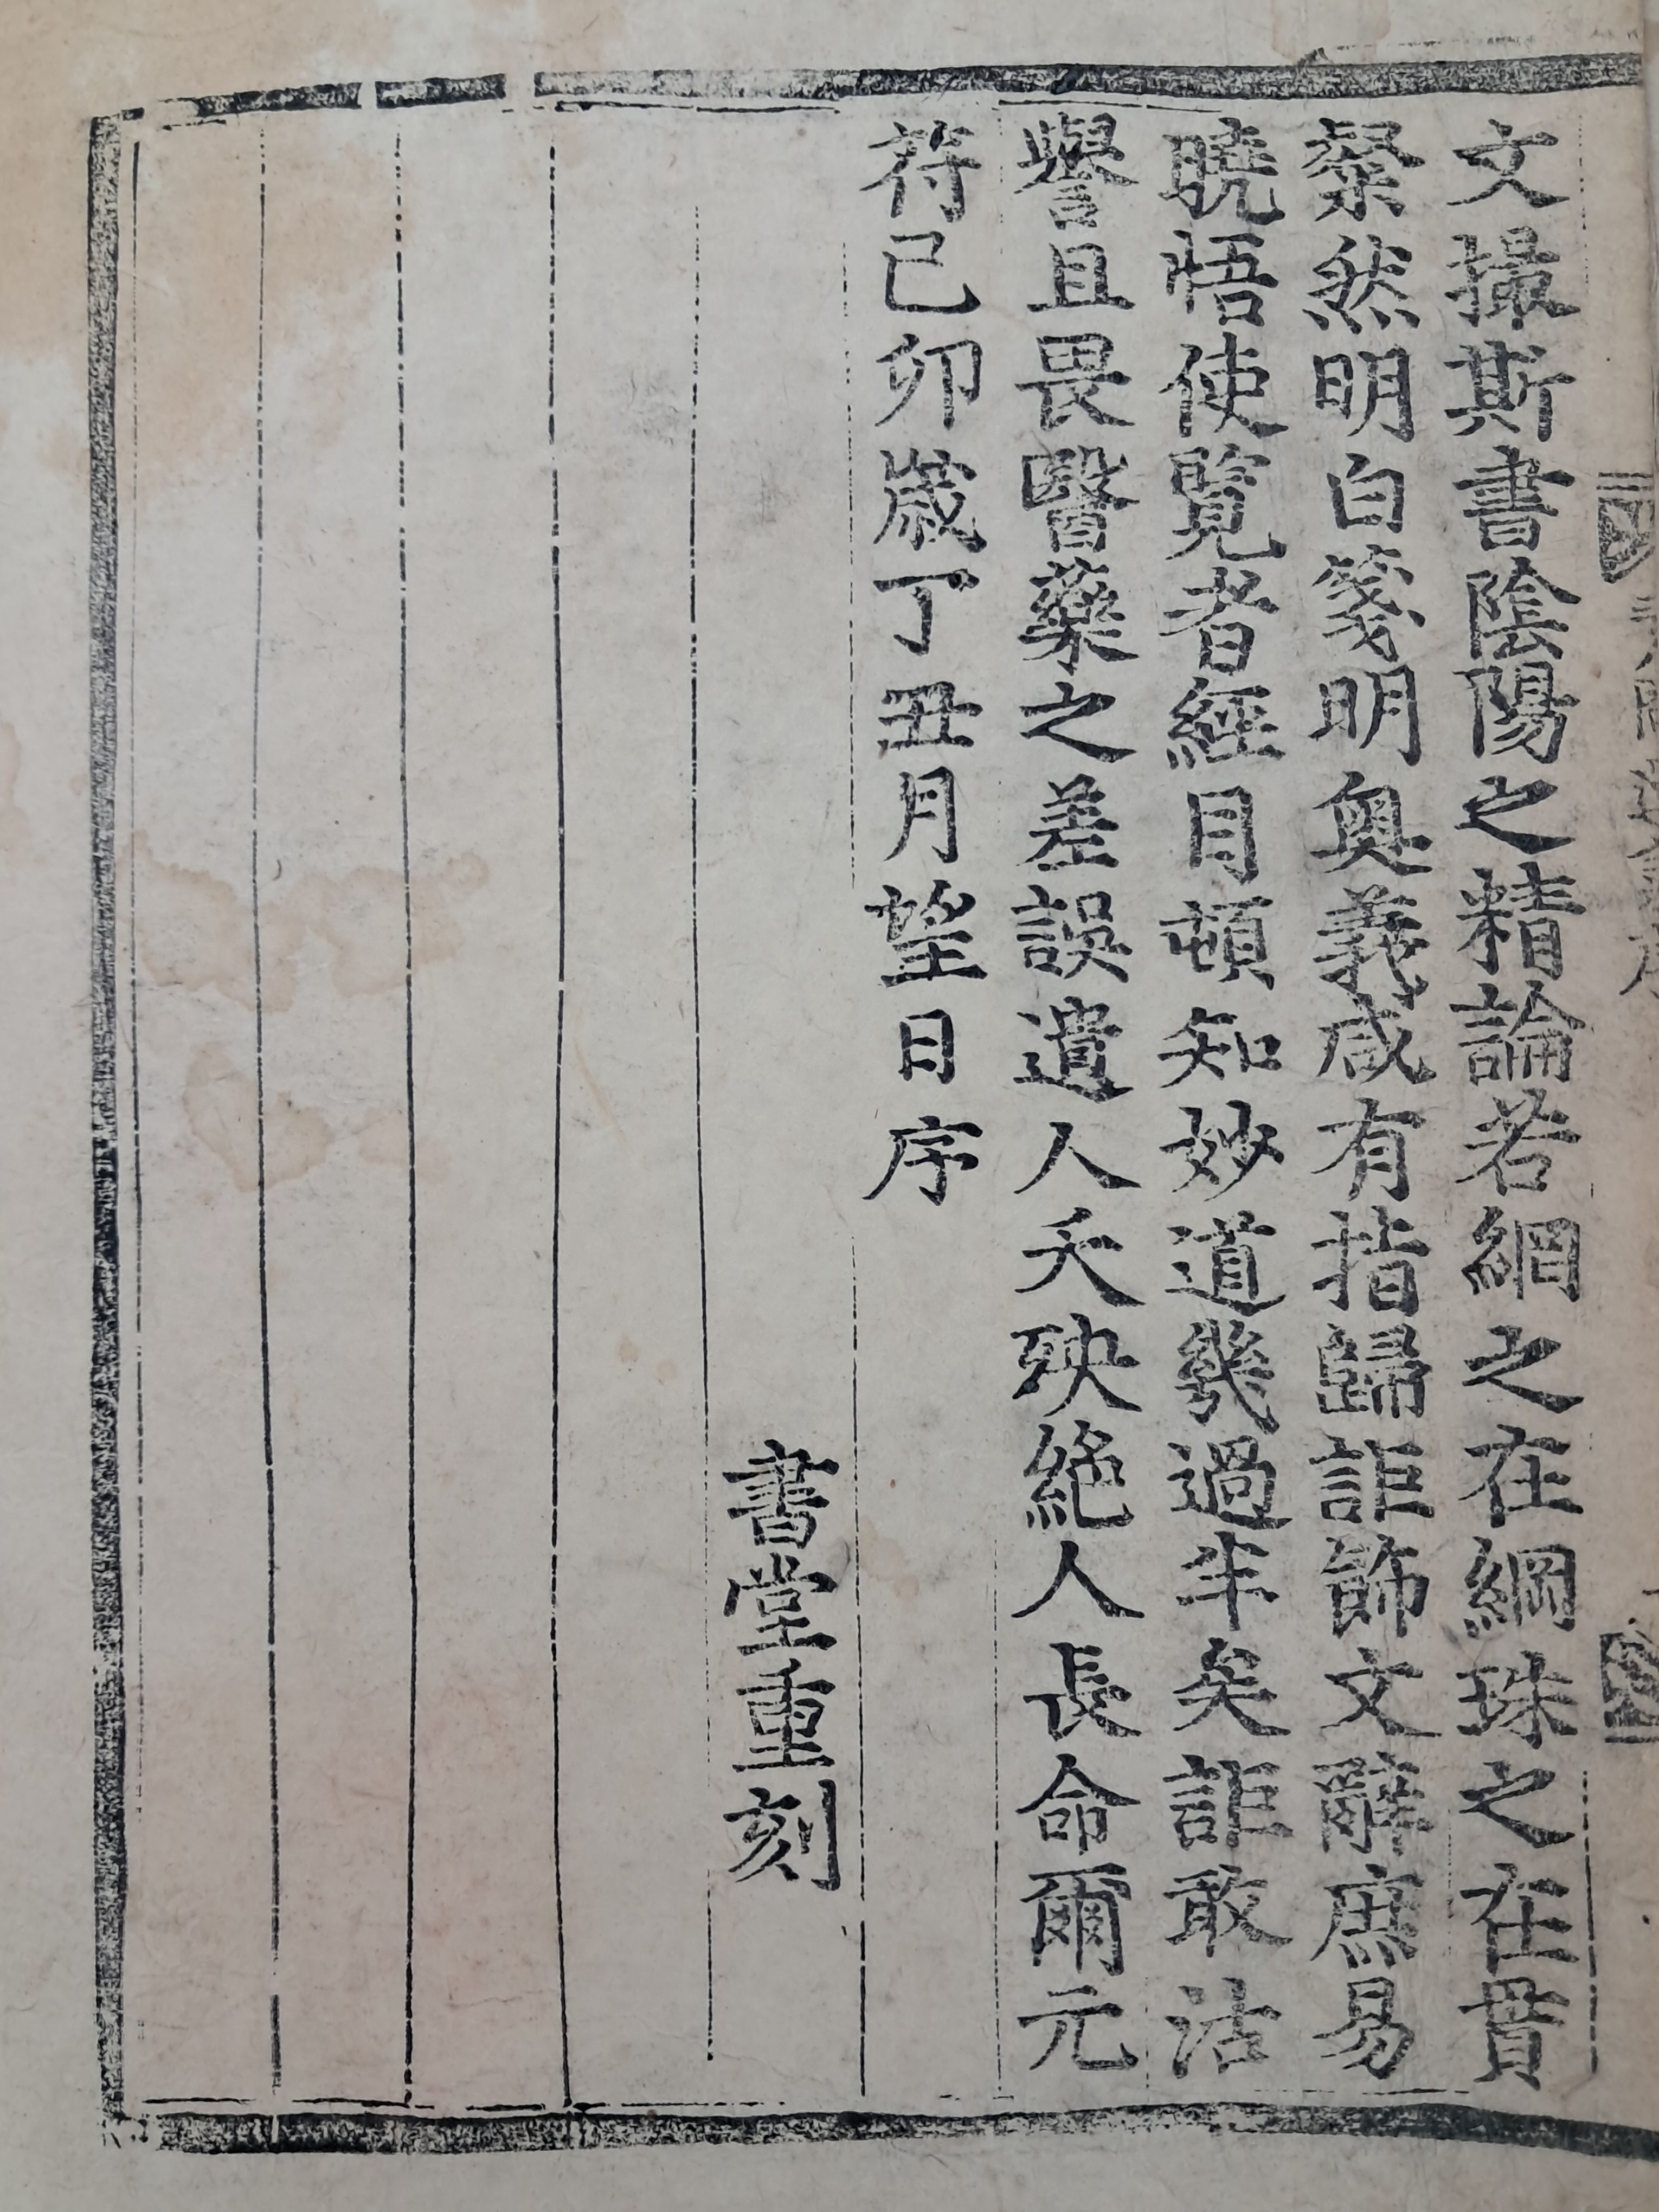 文撮斯書陰陽之精論若網之在綱珠之在貫
粲然明白箋明奧義咸有指歸詎飾文辭庶易
曉悟使覽者經目頓知妙道幾過半矣詎敢沽
譽且畏醫藥之差誤遣人夭殃絕人長命爾元
符己卯歲丁丑月望日序
書堂重刻